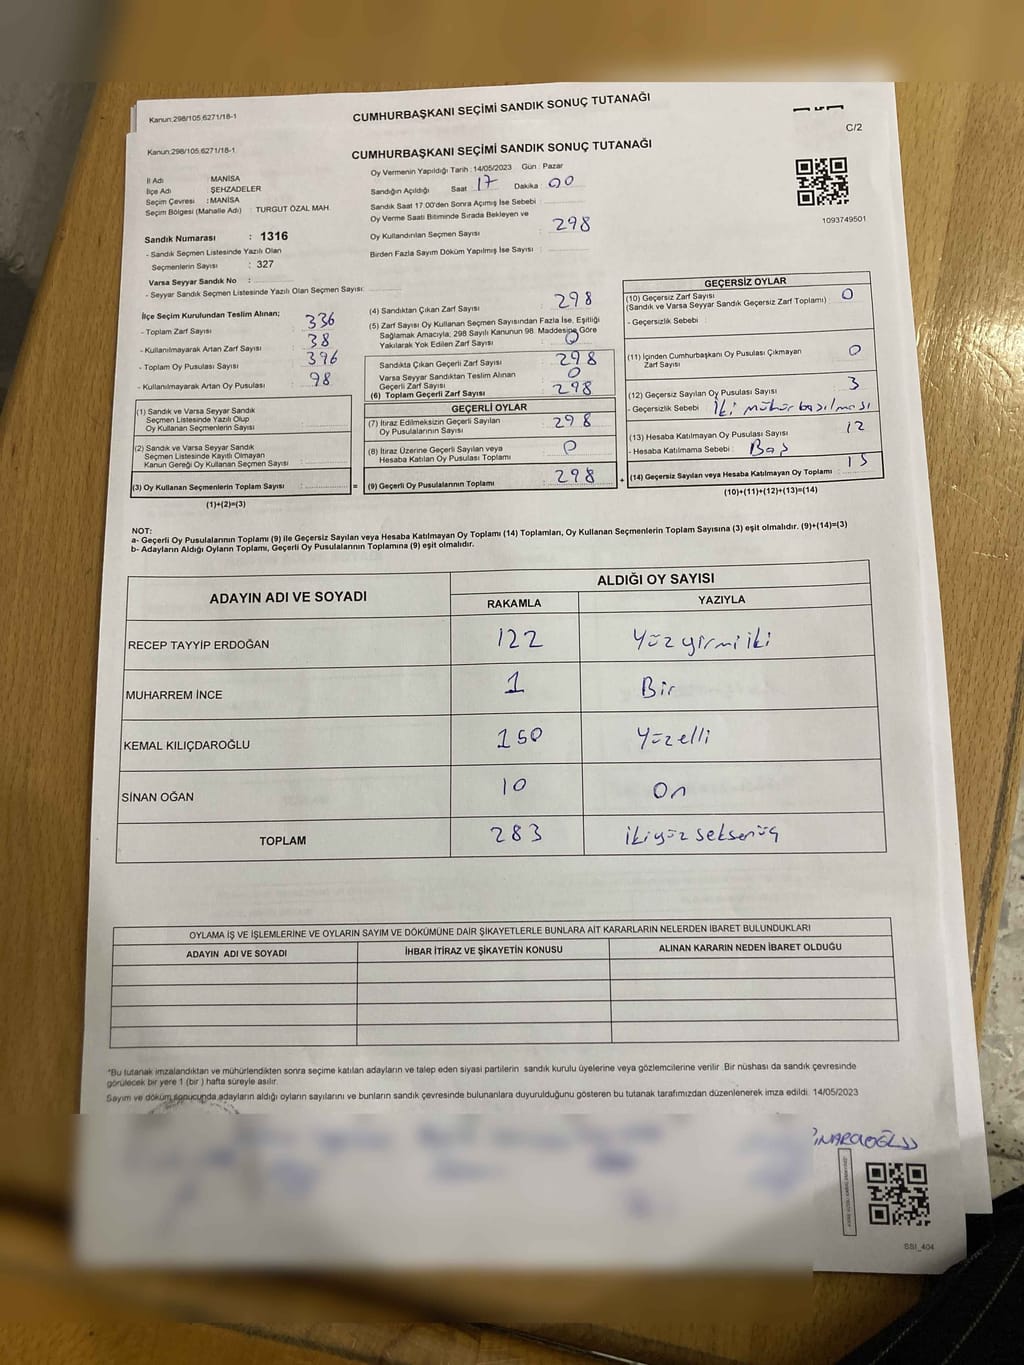 Kanun:298/105,6271/18-1
CUMHURBAŞKANI SEÇİMİ SANDIK SONUÇ TUTANAĞI
C/2
Kanun:298/105,6271/18-1
CUMHURBAŞKANI SEÇİMİ SANDIK SONUÇ TUTANAĞI
İl Adı MANİSA
İlçe Adı ŞEHZADELER
Seçim Çevresi : MANİSA
Seçim Bölgesi (Mahalle Adı) : TURGUT ÖZAL MAH.
Sandık Numarası : 1316
- Sandık Seçmen Listesinde Yazılı Olan
Seçmenlerin Sayısı : 327
Varsa Seyyar Sandık No :
- Seyyar Sandık Seçmen Listesinde Yazılı Olan Seçmen Sayısı:
Oy Vermenin Yapıldığı Tarih : 14/05/2023 Gün : Pazar
Sandığın Açıldığı Saat 17 Dakika : 00
Sandık Saat 17:00'den Sonra Açımış İse Sebebi :
Oy Verme Saati Bitiminde Sırada Bekleyen ve
Oy Kullandırılan Seçmen Sayısı : 298
Birden Fazla Sayım Döküm Yapılmış İse Sayısı :
1093749501
İlçe Seçim Kurulundan Teslim Alınan;
- Toplam Zarf Sayısı : 336
- Kullanılmayarak Artan Zarf Sayısı : 38
- Toplam Oy Pusulası Sayısı : 396
- Kullanılmayarak Artan Oy Pusulası : 98
(1) Sandık ve Varsa Seyyar Sandık
Seçmen Listesinde Yazılı Olup
Oy Kullanan Seçmenlerin Sayısı :
(2) Sandık ve Varsa Seyyar Sandık
Seçmen Listesinde Kayıtlı Olmayan
Kanun Gereği Oy Kullanan Seçmen Sayısı :
(3) Oy Kullanan Seçmenlerin Toplam Sayısı : =
(1)+(2)=(3)
(4) Sandıktan Çıkan Zarf Sayısı : 298
(5) Zarf Sayısı Oy Kullanan Seçmen Sayısından Fazla İse, Eşitliği
Sağlamak Amacıyla; 298 Sayılı Kanunun 98. Maddesine Göre
Yakılarak Yok Edilen Zarf Sayısı : 0
Sandıkta Çıkan Geçerli Zarf Sayısı : 298
Varsa Seyyar Sandıktan Teslim Alınan
Geçerli Zarf Sayısı : 0
(6) Toplam Geçerli Zarf Sayısı : 298
GEÇERLİ OYLAR
(7) İtiraz Edilmeksizin Geçerli Sayılan
Oy Pusulalarının Sayısı : 298
(8) İtiraz Üzerine Geçerli Sayılan veya
Hesaba Katılan Oy Pusulası Toplamı : 0
(9) Geçerli Oy Pusulalarının Toplamı : 298 +
GEÇERSİZ OYLAR
(10) Geçersiz Zarf Sayısı
(Sandık ve Varsa Seyyar Sandık Geçersiz Zarf Toplamı) : 0
- Geçersizlik Sebebi :
(11) İçinden Cumhurbaşkanı Oy Pusulası Çıkmayan
Zarf Sayısı : 0
(12) Geçersiz Sayılan Oy Pusulası Sayısı : 3
- Geçersizlik Sebebi : İki mühür basılması
(13) Hesaba Katılmayan Oy Pusulası Sayısı : 12
- Hesaba Katılmama Sebebi : Boş
(14) Geçersiz Sayılan veya Hesaba Katılmayan Oy Toplamı : 15
(10)+(11)+(12)+(13)=(14)
NOT:
a- Geçerli Oy Pusulasının Toplamı (9) ile Geçersiz Sayılan veya Hesaba Katılmayan Oy Toplamı (14) Toplamları, Oy Kullanan Seçmenlerin Toplam Sayısına (3) eşit olmalıdır. (9)+(14)=(3)
b- Adayların Aldığı Oyların Toplamı, Geçerli Oy Pusulalarının Toplamına (9) eşit olmalıdır.
ADAYIN ADI VE SOYADI
ALDIĞI OY SAYISI
RAKAMLA YAZIYLA
RECEP TAYYİP ERDOĞAN 122 Yüz yirmi iki
MUHARREM İNCE 1 Bir
KEMAL KILIÇDAROĞLU 150 Yüzelli
SİNAN OĞAN 10 On
TOPLAM 283 ikiyüz seksenüç
OYLAMA İŞ VE İŞLEMLERİNE VE OYLARIN SAYIM VE DÖKÜMÜNE DAİR ŞİKAYETLERLE BUNLARA AİT KARARLARIN NELERDEN İBARET BULUNDUKLARI
ADAYIN ADI VE SOYADI İHBAR İTİRAZ VE ŞİKAYETİN KONUSU ALINAN KARARIN NEDEN İBARET OLDUĞU
*Bu tutanak imzalandıktan ve mühürlendikten sonra seçime katılan adayların ve talep eden siyasi partilerin sandık kurulu üyelerine veya gözlemcilerine verilir .Bir nüshası da sandık çevresinde
görülecek bir yere 1 (bir ) hafta süreyle asılır.
Sayım ve döküm sonucunda adayların aldığı oyların sayılarını ve bunların sandık çevresinde bulunanlara duyurulduğunu gösteren bu tutanak tarafımızdan düzenlenerek imza edildi. 14/05/2023
SSI_404